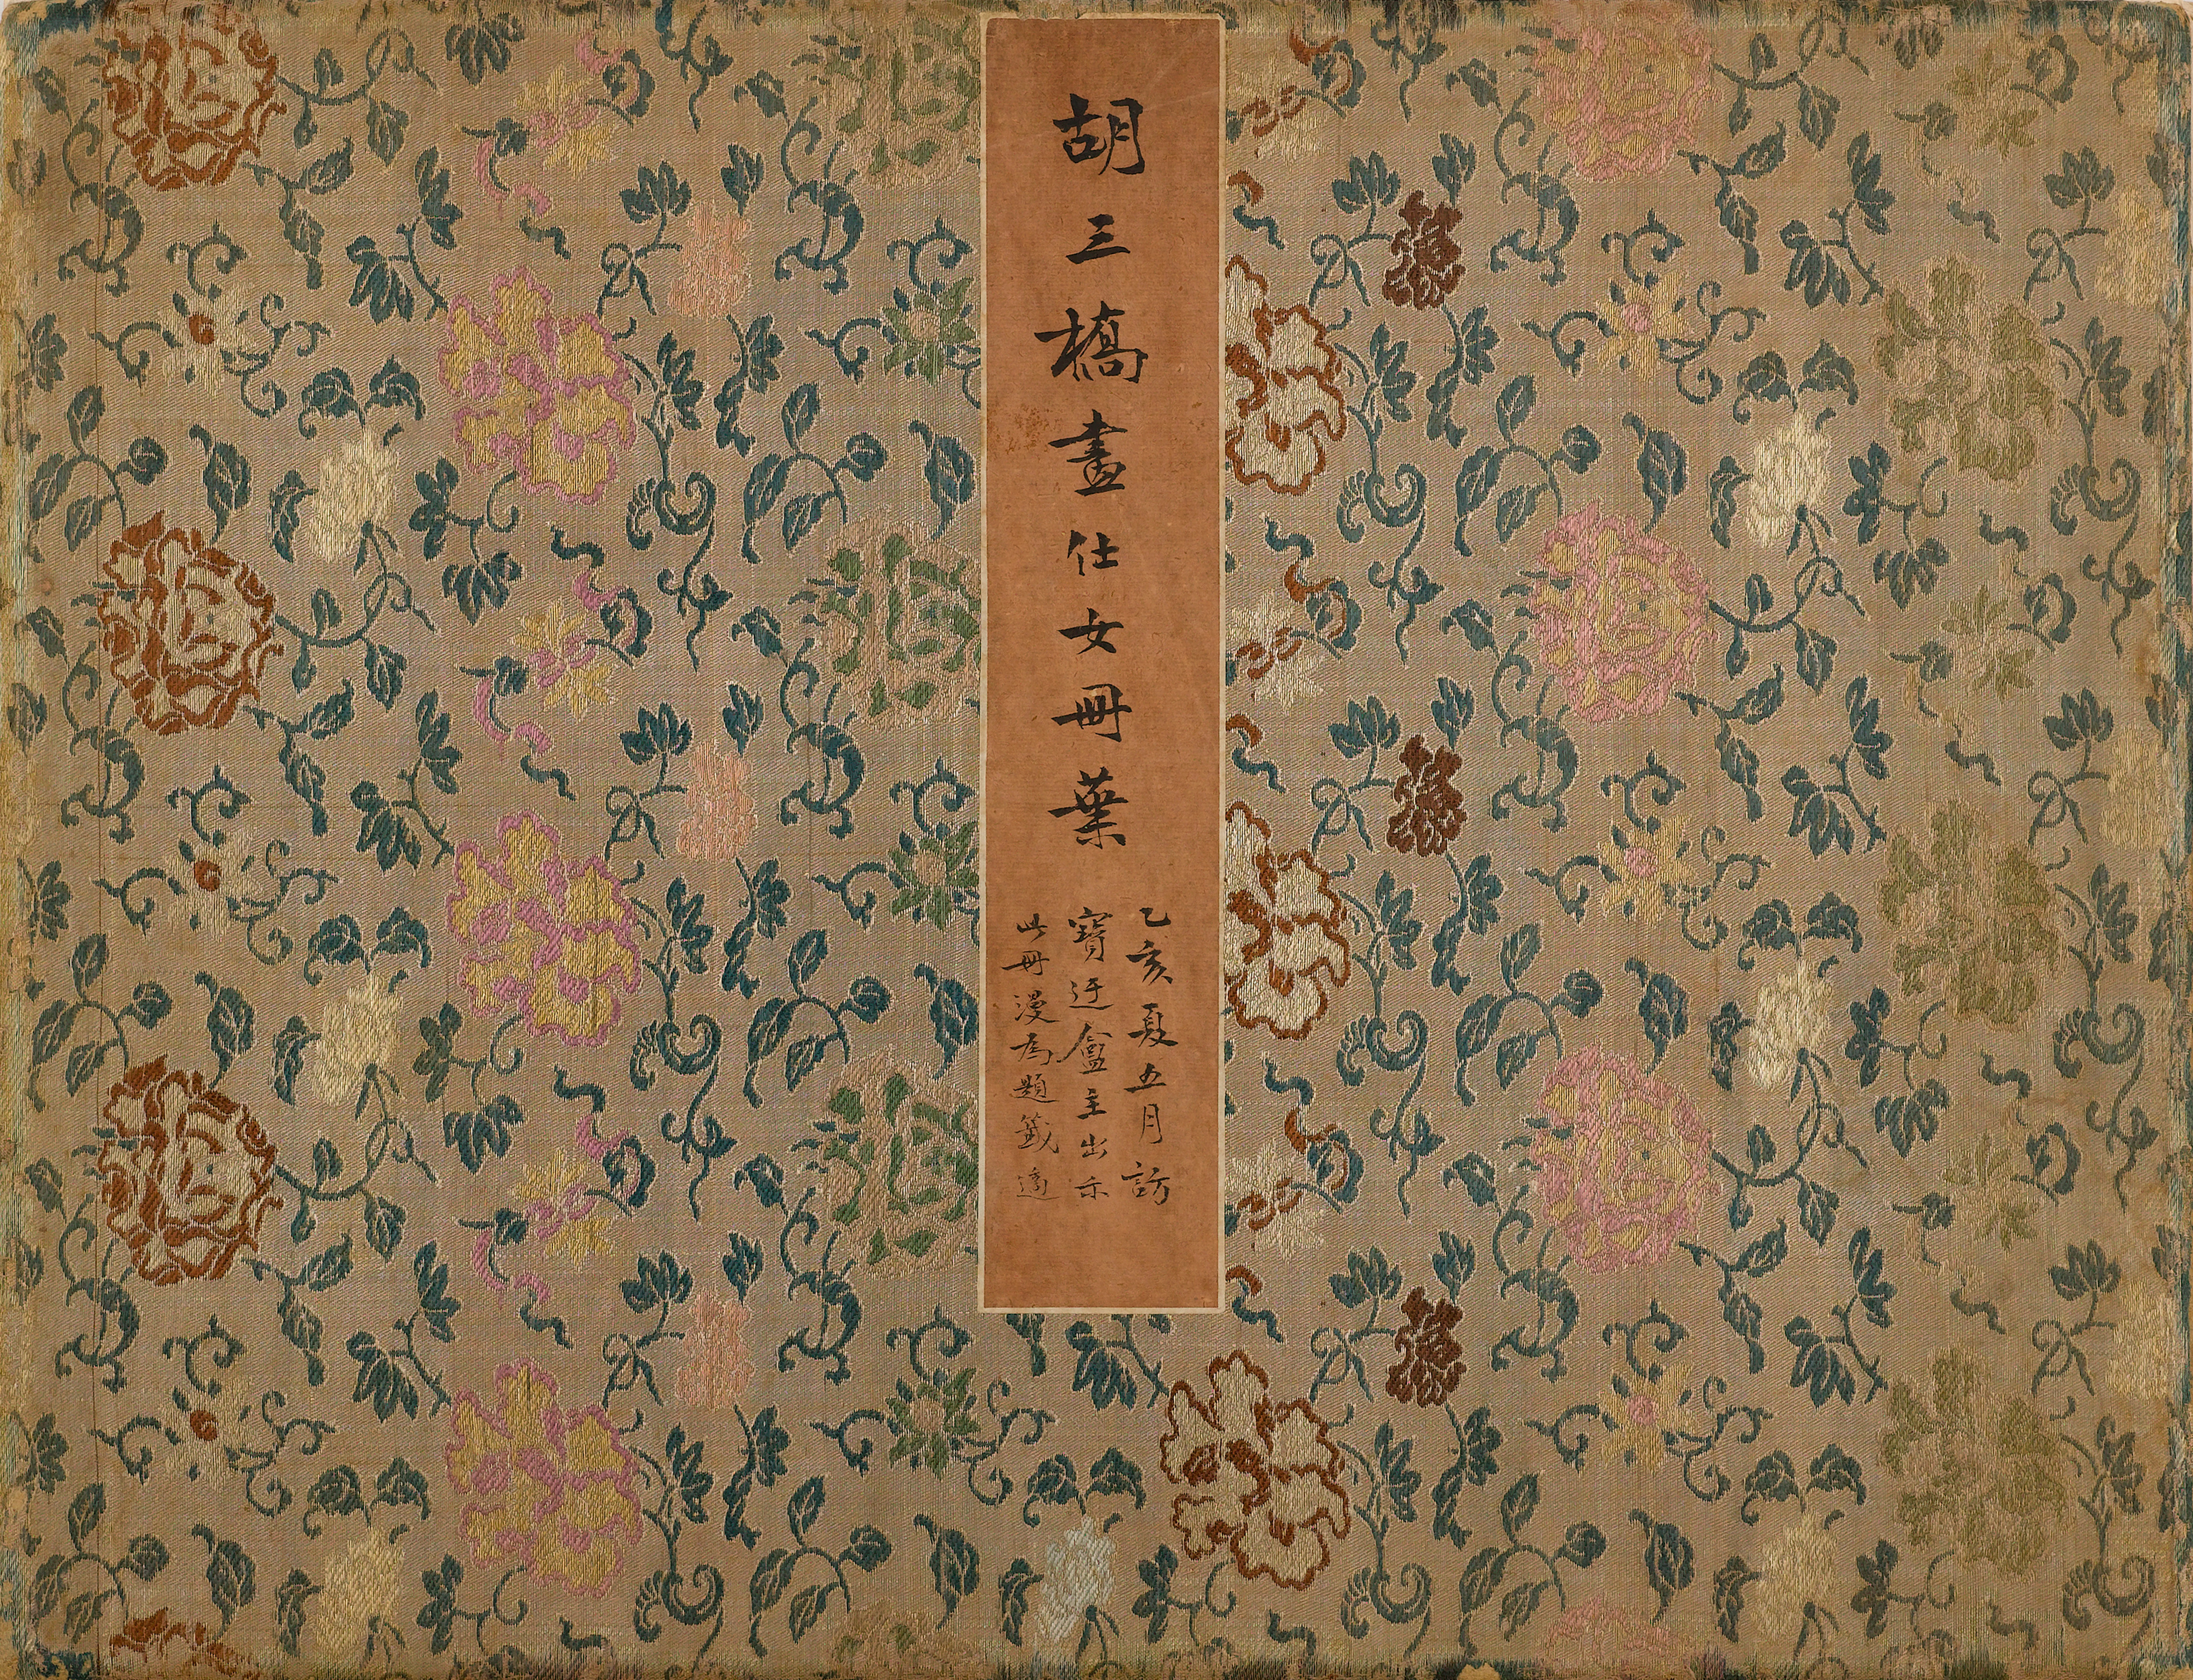 胡三橋畫仕女冊葉
乙亥夏五月訪
寶迂盦主出示
此冊漫為題籤